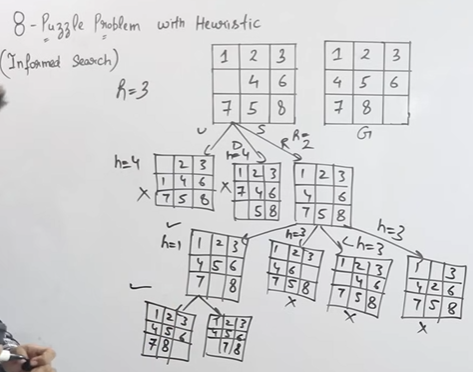 8-Puzzle Problem with Heuristic
(Informed Search)
h=3
1 2 3
4 6
7 5 8
S
1 2 3
4 5 6
7 8
G
U
D
h=4
R
h=2
h=4
2 3
1 4 6
7 5 8
X
1 2 3
7 4 6
5 8
X
1 2 3
4 6
7 5 8
h=1
1 2 3
4 5 6
7 8
h=3
1 2 3
4 6
7 5 8
X
L h=3
1 2 3
4 6
7 5 8
X
h=3
1 3
4 2 6
7 5 8
X
1 2 3
4 5 6
7 8
1 2 3
4 5 6
7 8